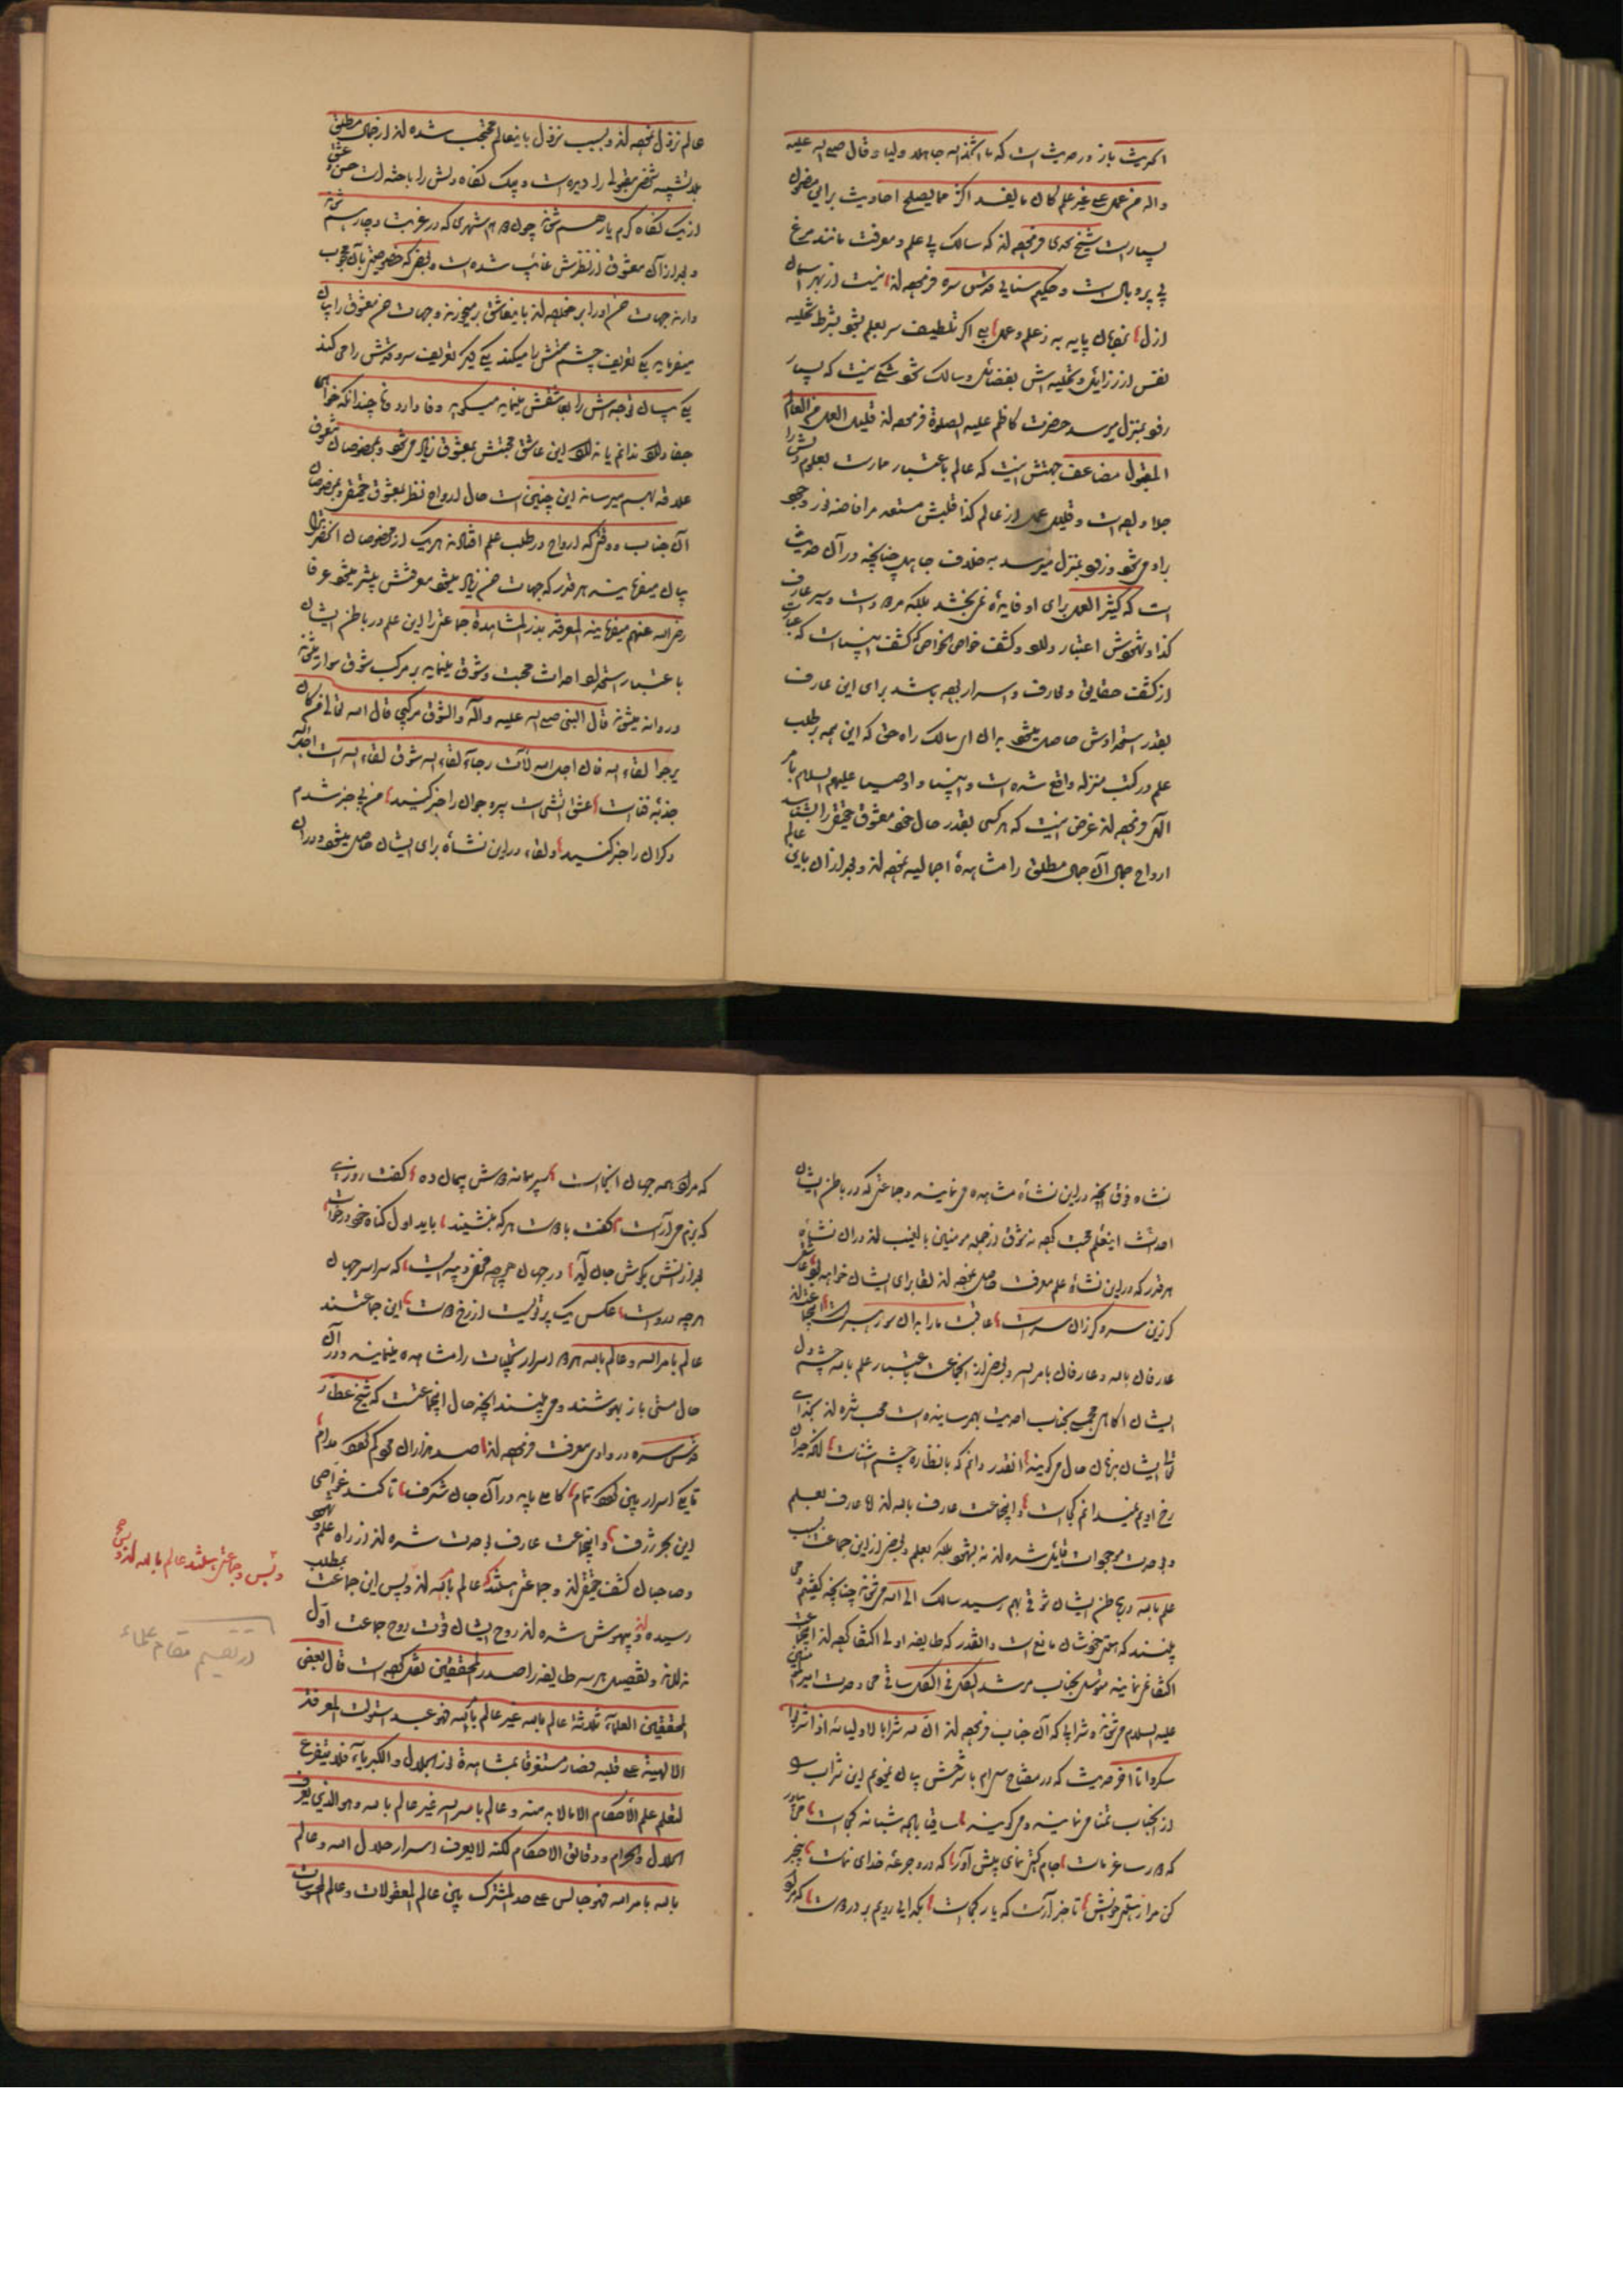 اکمریت باز در حدیث است که ما اتخذ الله جاهلا ولیا و قال صلی الله علیه
و اله من عمل علی غیر علم کان ما یفسد اکثر مما یصلح احادیث برای مضمون
بسیار است شیخ نجدی فرموده‌اند که سالک بی علم و معرفت مانند مرغ
بی پر و بال است و حکیم سنایی قدس سره فرموده‌اند نیست از بهر آسمان
ازل نردبان پایه به ز علم و عمل
نفس از رذایل و تحلیه اش بفضائل و سالک شود شکی نیست که بسیار
زود بمنزل میرسد حضرت کاظم علیه الصلوة فرموده‌اند قلیل العمل من العالم
المقبول مضاعف جهتش اینست که عالم باعتبار مهارت بعلوم دلش را
جلا داده است و قلیل عمل از عالم کذا قلبش مستعد مر افاضه نور وجود
را می‌شود و زود بمنزل میرسد به خلاف جاهل چنانچه در آن حدیث
است که کثیر العمل برای او فایده نمی‌بخشد بلکه مردود است و سیر عارف
از کشف حقایق و معارف و اسرار بوده باشد برای این عارف
بقدر استعدادش حاصل میشود بدان ای سالک راه حق که این همه بر طلب
علم در کتب منزله واقع شده است و انبیا و اوصیا علیهم السلام بامر
الهی فرموده‌اند غرض اینست که هر کسی بقدر حال خود معشوق حقیقی را بشناسد
ارواح جمال آن جمال مطلق را مشاهده اجمالیه نموده‌اند و بعد از آن باین عالم
عالم نزول نموده‌اند و بسبب نزول باینعالم محتجب شده‌اند از جمال مطلق
بلا تشبیه شخصی مقبولی را دیده است و بیک نگاه دلش را باخته است حسن و عشق
از یک نگاه گرم یار هم میشوند چون دو هم شهری که در غربت دچار هم شوند
و بعد از آن معشوق از نظرش غایب شده است و بعضی که خصوصیتی بآن محبوب
دارند جهات حسن او را بر خواهند با اینعاشق برمیخورند و جهات حسن معشوق را بیان
میفرمایند یکی تعریف چشم مستش را میکند یکی دیگر تعریف سرو قدش را می‌کند
یکی بیان توجه اش را بعاشقش مینماید میگوید وفا دارد و نه چندانکه خواهی
جفا دارد ندانم یا ندارد این عاشق محبتش بمعشوق زیاد می‌شود و بمخصوصان معشوق
علاقه بهم میرساند این چنین است حال ارواح نظر بمعشوق حقیقی و بمخصوصان
آن جناب و وقتی که ارواح در طلب علم افتادند هر یک از مخصوصان آنحضرت را
بیان میفرمایند هر قدر که جهات حسن زیاد میشود معرفتش بیشتر میشود عرفا
رضی الله عنهم میفرمایند المعرفة بذر المشاهدة جماعتی را این علم در باطن ایشان
باعتبار استعداد احداث محبت و شوق مینماید بر مرکب شوق سوار میشوند
و روانه میشوند قال النبی صلی الله علیه و آله و الشوق مرکبی قال الله تعالی من کان
یرجوا لقاء الله فان اجل الله لآت رجاء لقاء الله شوق لقاء الله است اجل الله
جذبه فناست عشق آتشی است پیر و جوان را خبر کنید من بی خبر شدم
دگران را خبر کنید و لقاء در این نشأه برای ایشان حاصل میشود و در آن
نشاه فوق آنچه در این نشأه مشاهده می‌نمایند و جماعتی که در باطن ایشان
احداث اینعلم محبت کرده نه شوق از جمله مؤمنین بالغیب‌اند در آن نشأه
هر قدر که در این نشأه علم معرفت حاصل نموده‌اند لقا برای ایشان خواهد بود
گر زین سر و گر زان سر است عاقبت ما را بدان سر رهبر است
عارفان بالله و عارفان بامر الله و بعضی از آنجماعت باعتبار علم بالله چشم دل
ایشان آگاهی محبت بجناب احدیت بهم رسانیده است محب شده‌اند بخدای
تعالی ایشان بزبان حال می‌گویند آنقدر دانم که با نظاره چشم آشناست لیک حیران
رخ اویم نمیدانم کجاست و اینجماعت عارف بالله‌اند اما عارف بعلم
وحدت موجودات قایل شده‌اند نه بشهود بلکه بعلم و بعضی از این جماعت بسبب
علم بالله در باطن ایشان شوقی بهم رسید سالک الی الله می‌شوند چنانچه گفتیم می
بینند که هستی خودشان مانع است و بآنقدر که طایفه اولی اکتفا کرده‌اند اینجماعت
اکتفا نمی‌نمایند متوسل بجناب مرشد الکل فی الکل ساقی می وحدت امیر المؤمنین
علیه السلام می‌شوند و شرابی که آن جناب فرموده‌اند ان لله شرابا لاولیائه اذا شربوا
سکروا تا آخر حدیث که در مفتاح سیم با شرحش بیان نمودم این شراب را
از آنجناب تمنا می‌نمایند و می‌گویند ساقیا باده شبانه کجاست
که در ساغر ماست جام گیتی نمای پیش آور که در او جرعه خدای نماست بیخبر
کن مرا ز هستی خویش تا خبر آرمت که یار کجاست بگدایی رویم بر در دوست
که مراد همه جهان آنجاست گفت روزی
که بزم می آراست گفت با دوست هر که بنشیند باید اول گناه خود درخواست
بعد از آنش بگوش جان آید در جهان هر چه مخفی و پیداست که سراسر جهان
هر چه در اوست عکس یک پرتوی است از رخ دوست این جماعتند
عالم بامر الله و عالم بالله هم در اسرار تجلیات را مشاهده مینمایند و در آن
حال مستی باز بهوشند و می بینند آنچه حال اینجماعت است که شیخ عطار
قدس سره در وادی معرفت فرموده‌اند صد هزاران مرد گم گردد مدام
تا یکی اسرار بین گردد تمام کاملی باید در آن جان شگرف تا کند غواصی
این بحر ژرف و اینجماعت عارف بوحدت شده‌اند از راه علم و شهود
و صاحبان کشف حقیقی‌اند و جماعتی هستند که عالم بالله‌اند و بس این جماعت بمطلب
رسیده‌اند و بیهوش شده‌اند روح ایشان قوت روح جماعت اول
ندارد و تفصیل هر سه طایفه را صدر المحققین نقل کرده است قال بعض
المحققین العلماء ثلاثة عالم بالله غیر عالم بامر الله فهو عبد استولت المعرفة
الالهیة علی قلبه فصار مستغرقا بمشاهدة نور الجلال و الکبریاء فلا یتفرغ
لتعلم علم الاحکام الا ما لا بد منه و عالم بامر الله غیر عالم بالله و هو الذی یعرف
الحلال و الحرام و دقائق الاحکام لکنه لا یعرف اسرار جلال الله و عالم
بالله بامر الله فهو جالس علی حد المشترک بین عالم المعقولات و عالم المحسوسات
و بس و جماعتی هستند عالم بالله‌اند و بس صح
در تقسیم مقام علماء